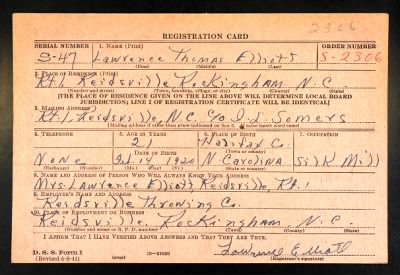 2306
REGISTRATION CARD
SERIAL NUMBER 1. NAME (Print) ORDER NUMBER
S-47 Lawrence Thomas Elliott S-2306
(First) (Middle) (Last)
2. PLACE OF RESIDENCE (Print)
Rt. 1, Reidsville Rockingham N.C.
(Number and street) (Town, township, village, or city) (County) (State)
[THE PLACE OF RESIDENCE GIVEN ON THE LINE ABOVE WILL DETERMINE LOCAL BOARD
JURISDICTION; LINE 2 OF REGISTRATION CERTIFICATE WILL BE IDENTICAL]
3. MAILING ADDRESS
Rt. 1, Reidsville, N.C. Somers
[Mailing address if other than place indicated on line 2. If same insert word same]
4. TELEPHONE 5. AGE IN YEARS 6. PLACE OF BIRTH 7. OCCUPATION
21 Halifax Co.
DATE OF BIRTH (Town or county)
None 14 1920 N. Carolina Silk Mill
(Exchange) (Number) (Mo.) (Day) (Yr.) (State or country)
8. NAME AND ADDRESS OF PERSON WHO WILL ALWAYS KNOW YOUR ADDRESS
Mrs. Lawrence Elliott, Reidsville, Rt. 1
9. EMPLOYER'S NAME AND ADDRESS
Reidsville Throwing Co.
10. PLACE OF EMPLOYMENT OR BUSINESS
Reidsville, Rockingham N.C.
(Number and street or R. F. D. number) (Town) (County) (State)
I AFFIRM THAT I HAVE VERIFIED ABOVE ANSWERS AND THAT THEY ARE TRUE.
D. S. S. Form 1 Elliott
(Revised 6-9-41) (over) 16-21630 (Registrant's signature)